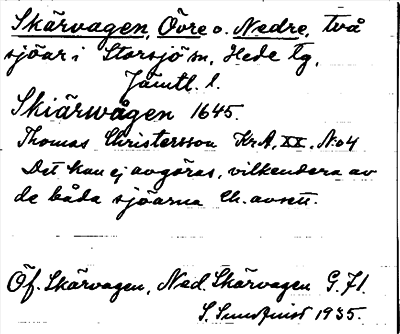 Skärvagen, Övre o. Nedre, två
sjöar i Storsjö sn, Hede tg,
Jämtl. l.
Skiärwågen 1645.
Thomas Christersson KrA, XX. No 4
Det kan ej avgöras, vilkendera av
de båda sjöarna Ch. avsett.
Öf. Skärvagen, Ned. Skärvagen G. Fl.
S. Sundquist 1935.